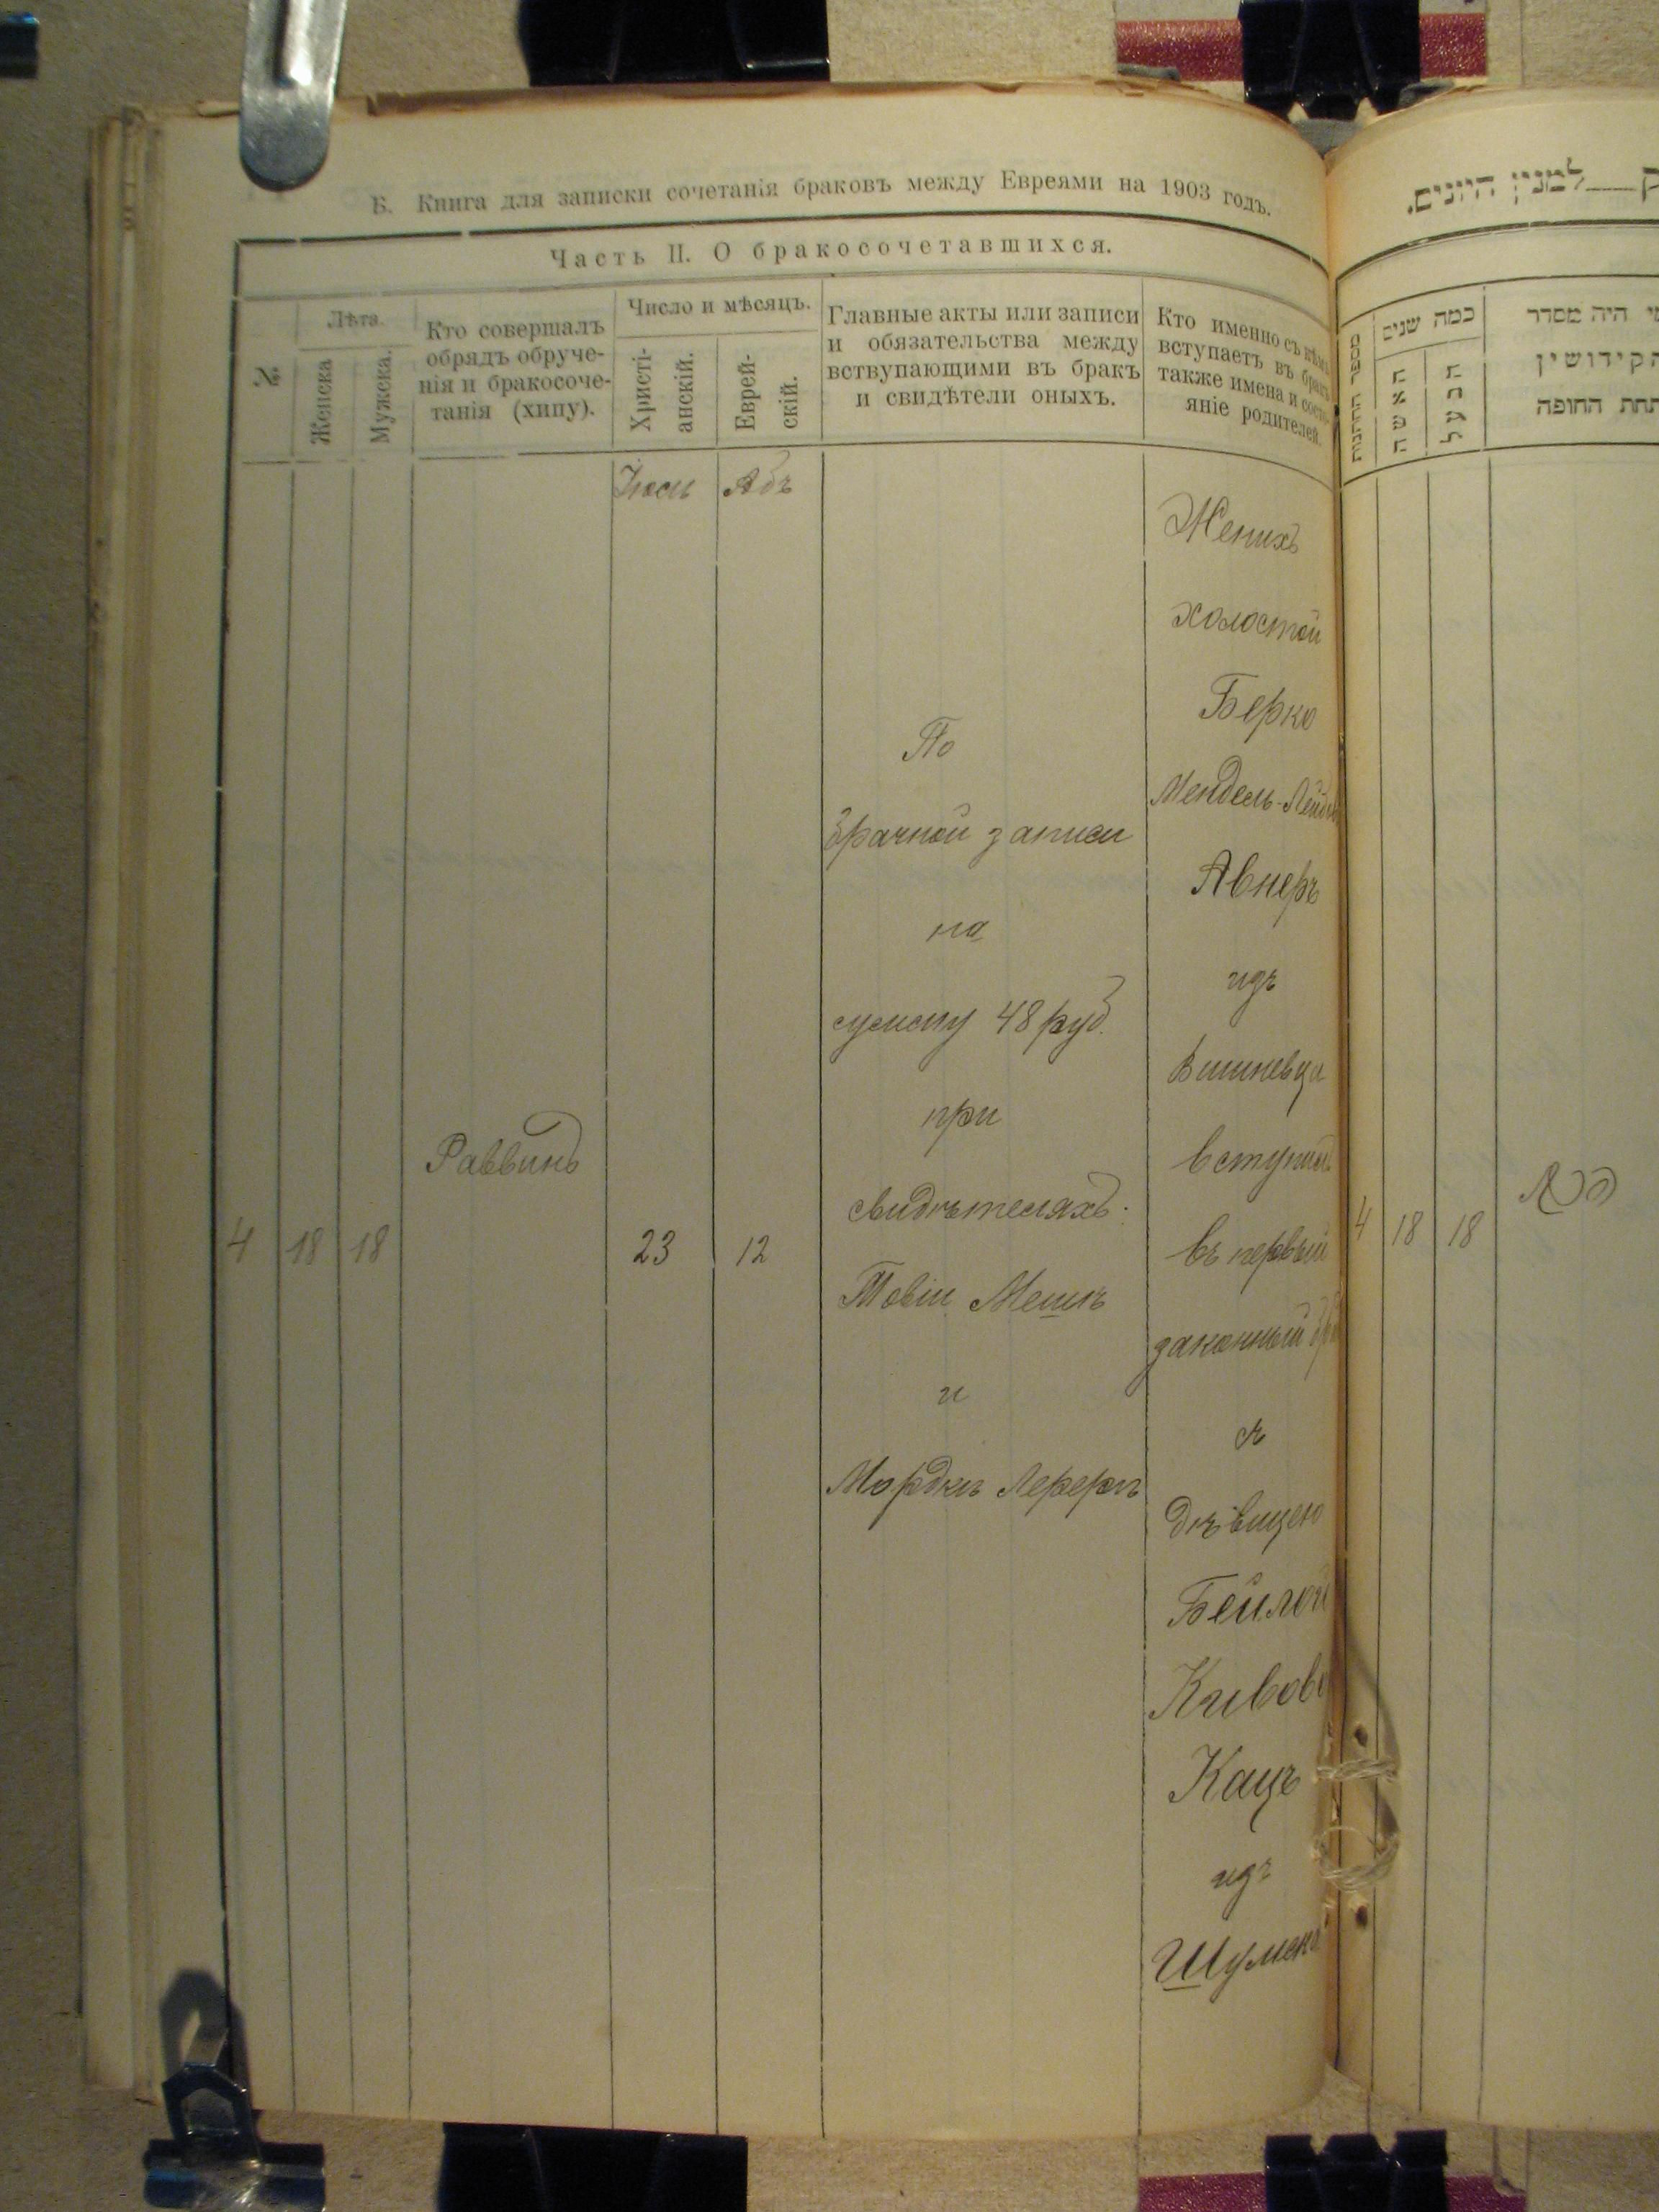 Б. Книга для записки сочетанія браковъ между Евреями на 1903 годъ.
Часть II. О бракосочетавшихся.
№
Лѣта.
Женска
Мужска.
Кто совершалъ
обрядъ обруче-
нія и бракосоче-
танія (хипу).
Число и мѣсяцъ.
Христі-
анскій.
Еврей-
скій.
Главные акты или записи
и обязательства между
вствупающими въ бракъ
и свидѣтели оныхъ.
Кто именно съ кѣмъ
вступаетъ въ бракъ
также имена и состо-
яніе родителей.
Абъ
4
18
18
Раввинъ
23
12
По
брачной записи
на
сумму 48 руб.
при
свидѣтеляхъ:
Товіи Мешъ
и
Мордкѣ Лерерѣ
Женихъ
холостой
Берко
Мендель-
Авнеръ
изъ
Вишневца
вступилъ
въ первый
законный
съ
дѣвицею
Бейлой
Кац‌ъ
изъ
Шумска
למנין היונים.
מספר החתונות
כמה שנים
האשה
הבעל
מי היה מסדר
הקידושין
תחת החופה
4
18
18
הרב